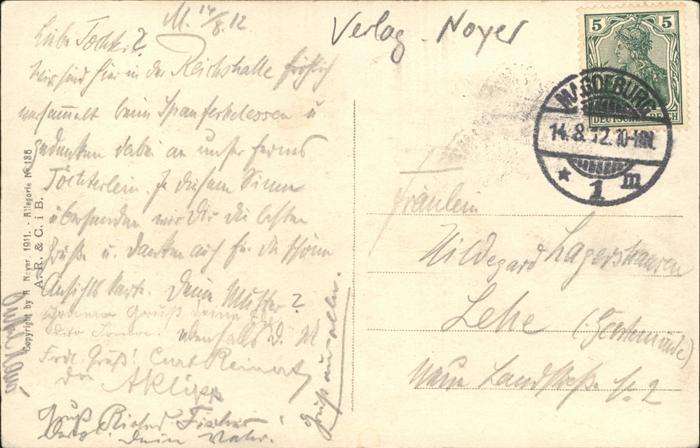 M. 14/8. 12
Verlag. Noyer
Liebe Tochter!
Wir sind hier in der Reichshalle fröhlich
versammelt beim Spanferkelessen u
gedenken dabei an unser fernes
Töchterlein. In diesem Sinne
übersenden wir Dir die besten
Grüße u. danken auch für die schöne
Ansichtskarte. Deine Mutter
Gruß
Curt Reinert
Gruß Richard Fischer
Dein Vater!
Grüße an alle.
Copyright by R. Noyer 1911. - Allegorie No 186
A. R. & C. i B.
5 5
DEUTSCHES REICH
MAGDEBURG
14.8.12.10-11N.
* 1 m
Fräulein
Hildegard Lagershausen
Lehe (Geestemünde)
Landstraße 2